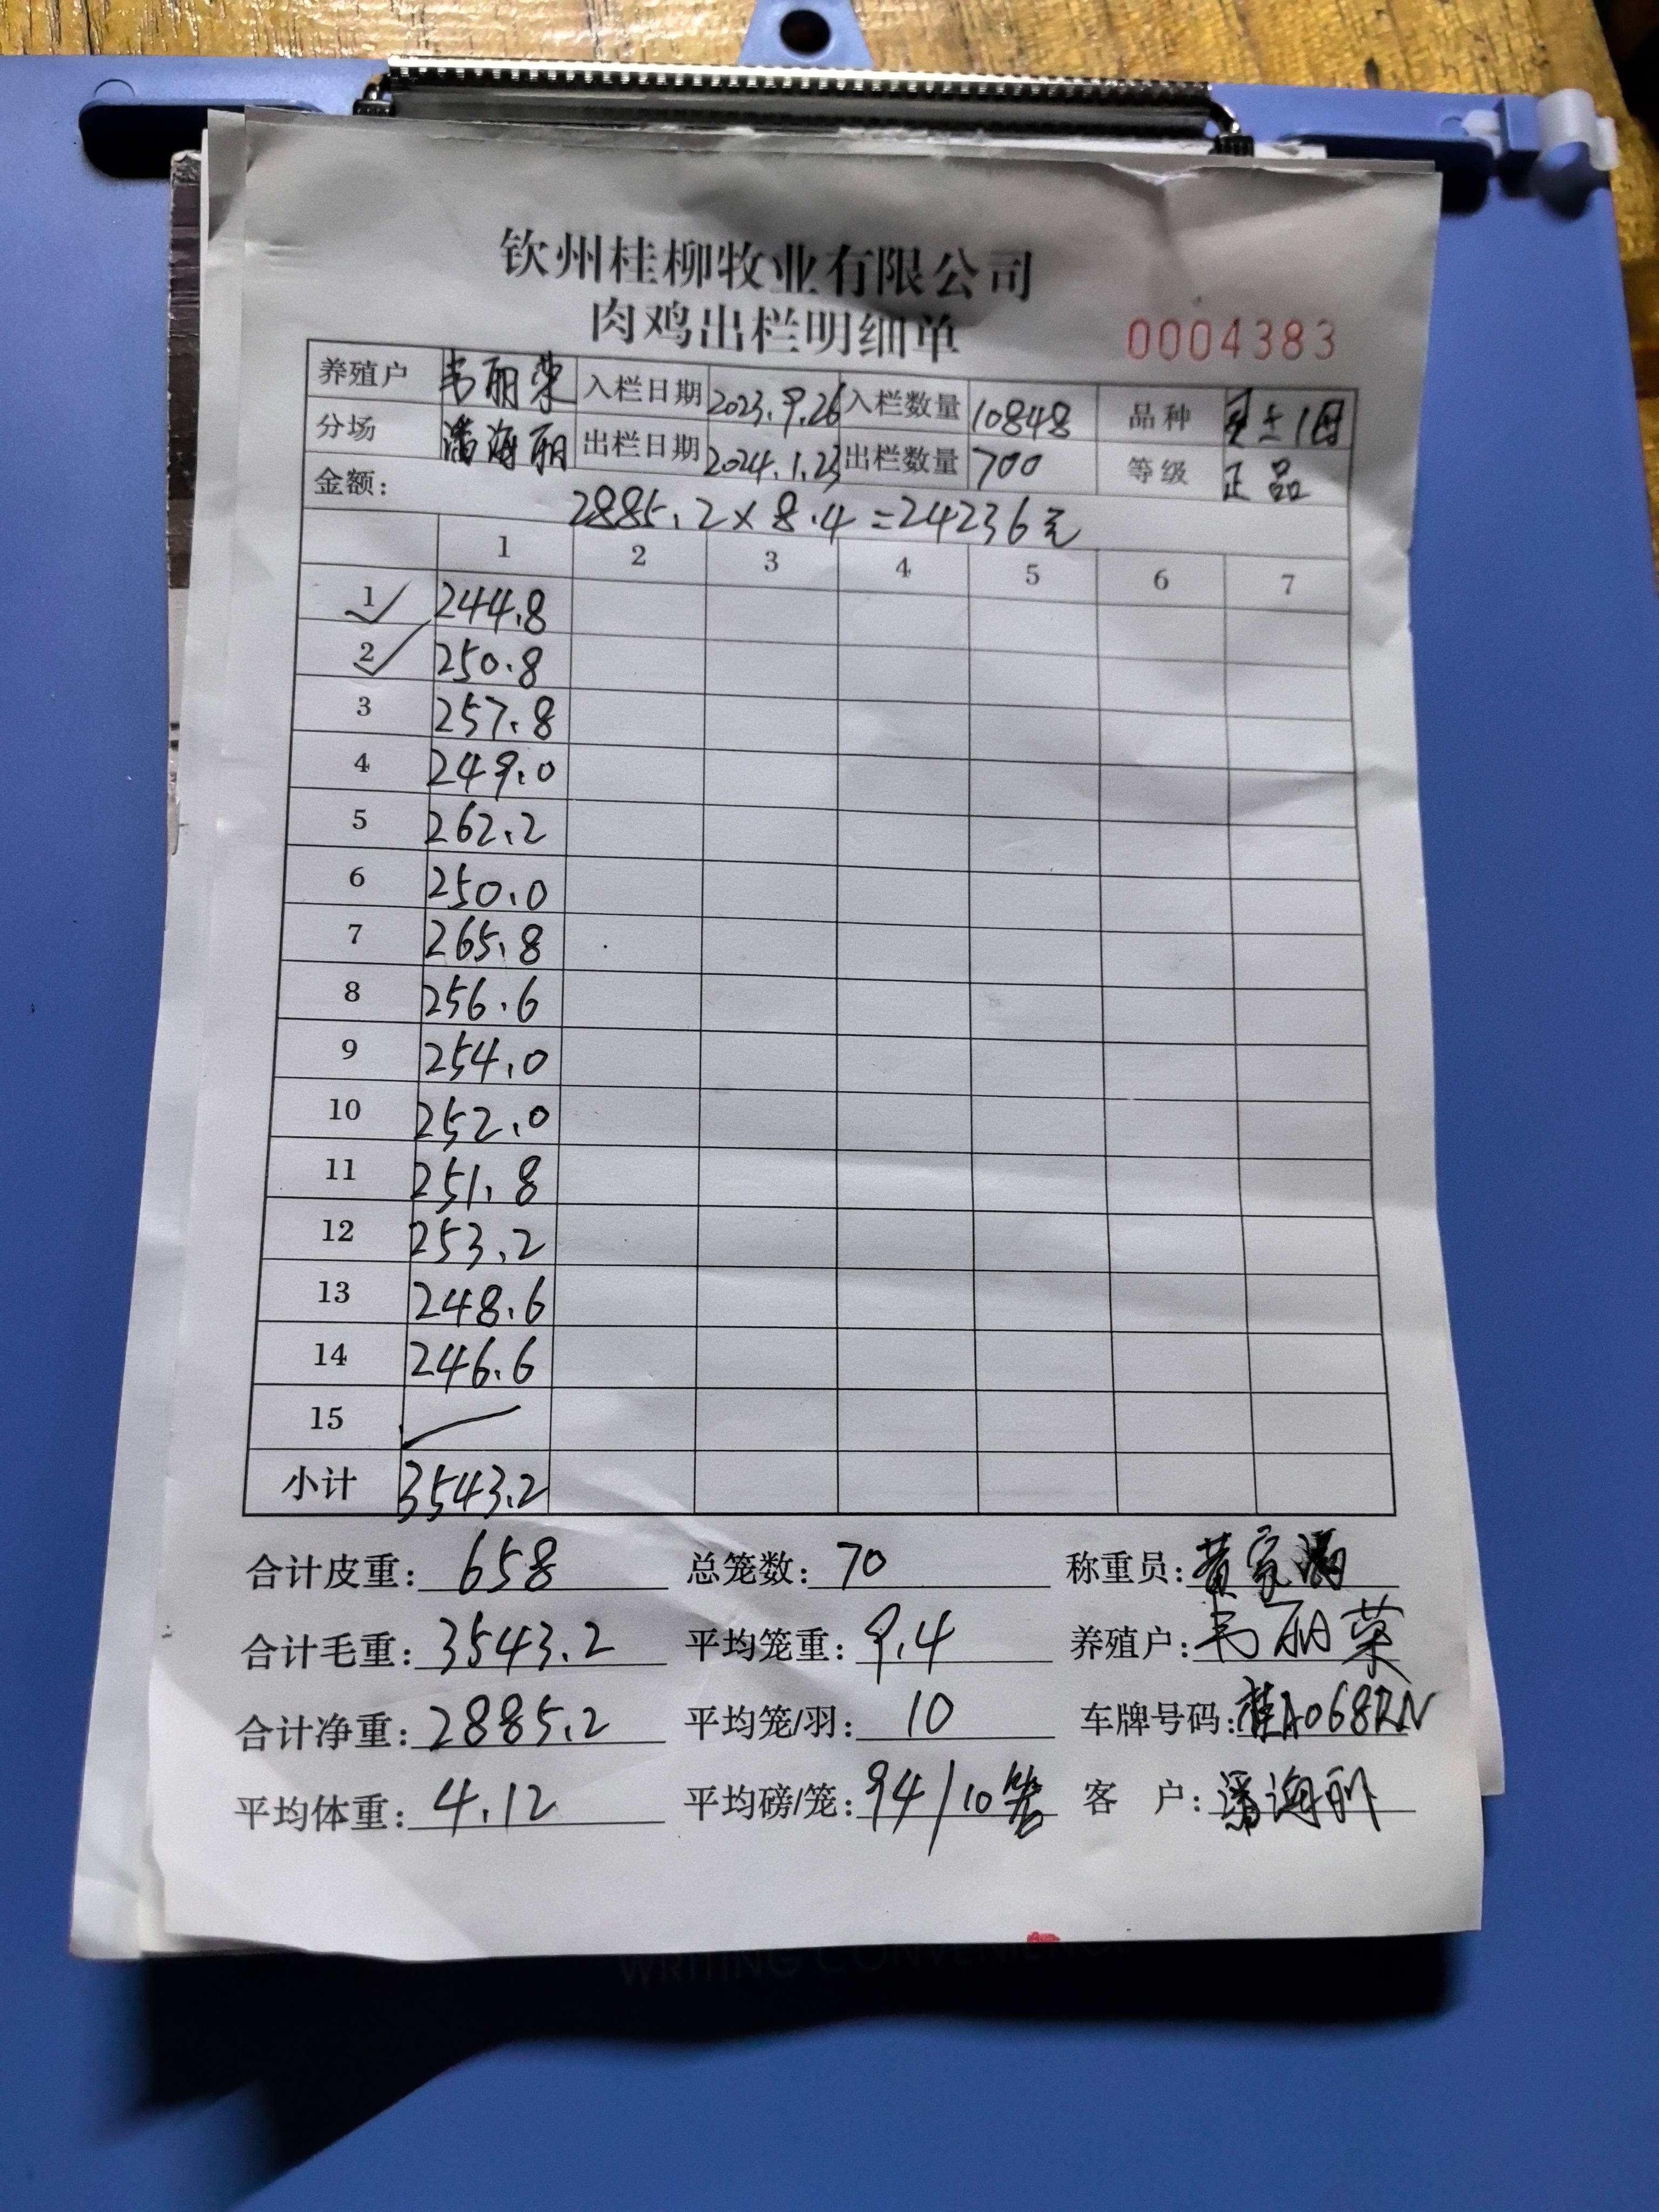 钦州桂柳牧业有限公司
肉鸡出栏明细单 0004383
养殖户 韦丽荣 入栏日期 2023.9.26 入栏数量 10848 品种
分场 潘海丽 出栏日期 2024.1.23 出栏数量 700 等级 正品
金额: 2885.2×8.4=24236元
1 2 3 4 5 6 7
1 244.8
2 250.8
3 257.8
4 249.0
5 262.2
6 250.0
7 265.8
8 256.6
9 254.0
10 252.0
11 251.8
12 253.2
13 248.6
14 246.6
15
小计 3543.2
合计皮重: 658 总笼数: 70 称重员: 黄家
合计毛重: 3543.2 平均笼重: 9.4 养殖户: 韦丽荣
合计净重: 2885.2 平均笼/羽: 10 车牌号码: 桂A068RN
平均体重: 4.12 平均磅/笼: 94/10笼 客户: 潘海丽
WRITING CONVENIENCE